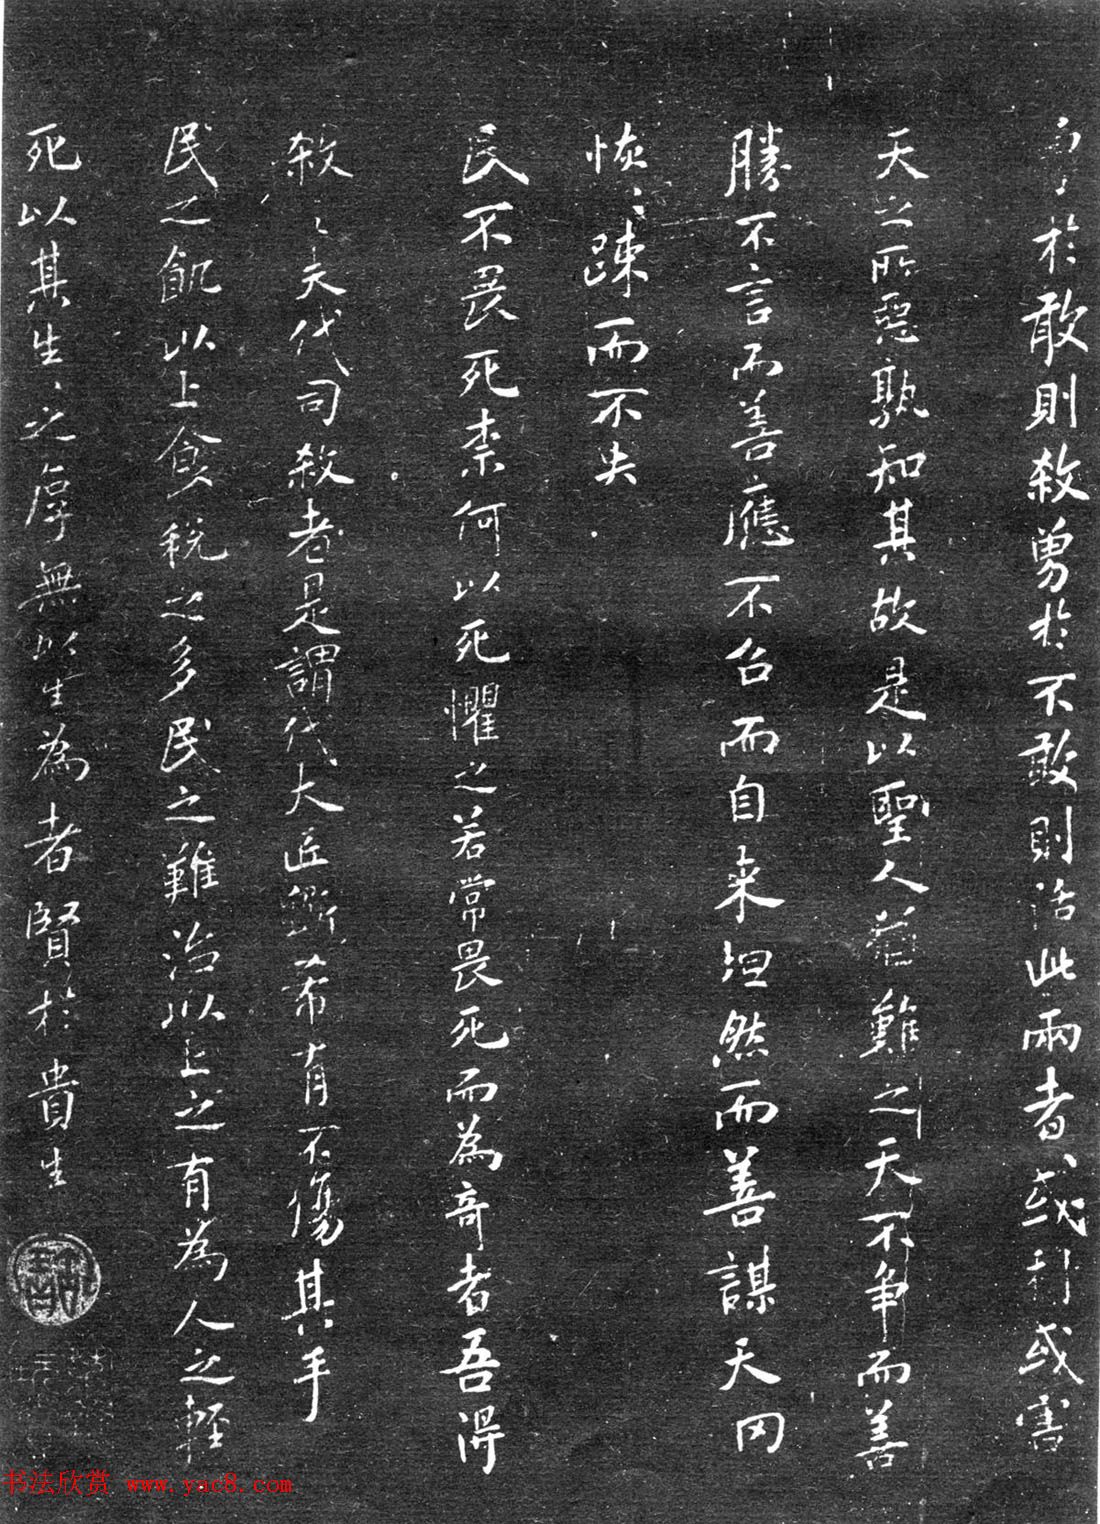 勇於敢則殺勇於不敢則活此兩者或利或害
天之所惡孰知其故是以聖人猶難之天不爭而善
勝不言而善應不召而自来坦然而善謀天罔
恢〻踈而不失
民不畏死柰何以死懼之若常畏死而為奇者吾得
殺之夫代司殺者是謂代大匠斲希有不傷其手
民之飢以上食稅之多民之難治以上之有為人之輕
死以其生〻之厚無以生為者賢於貴生
书法欣赏 www.yac8.com